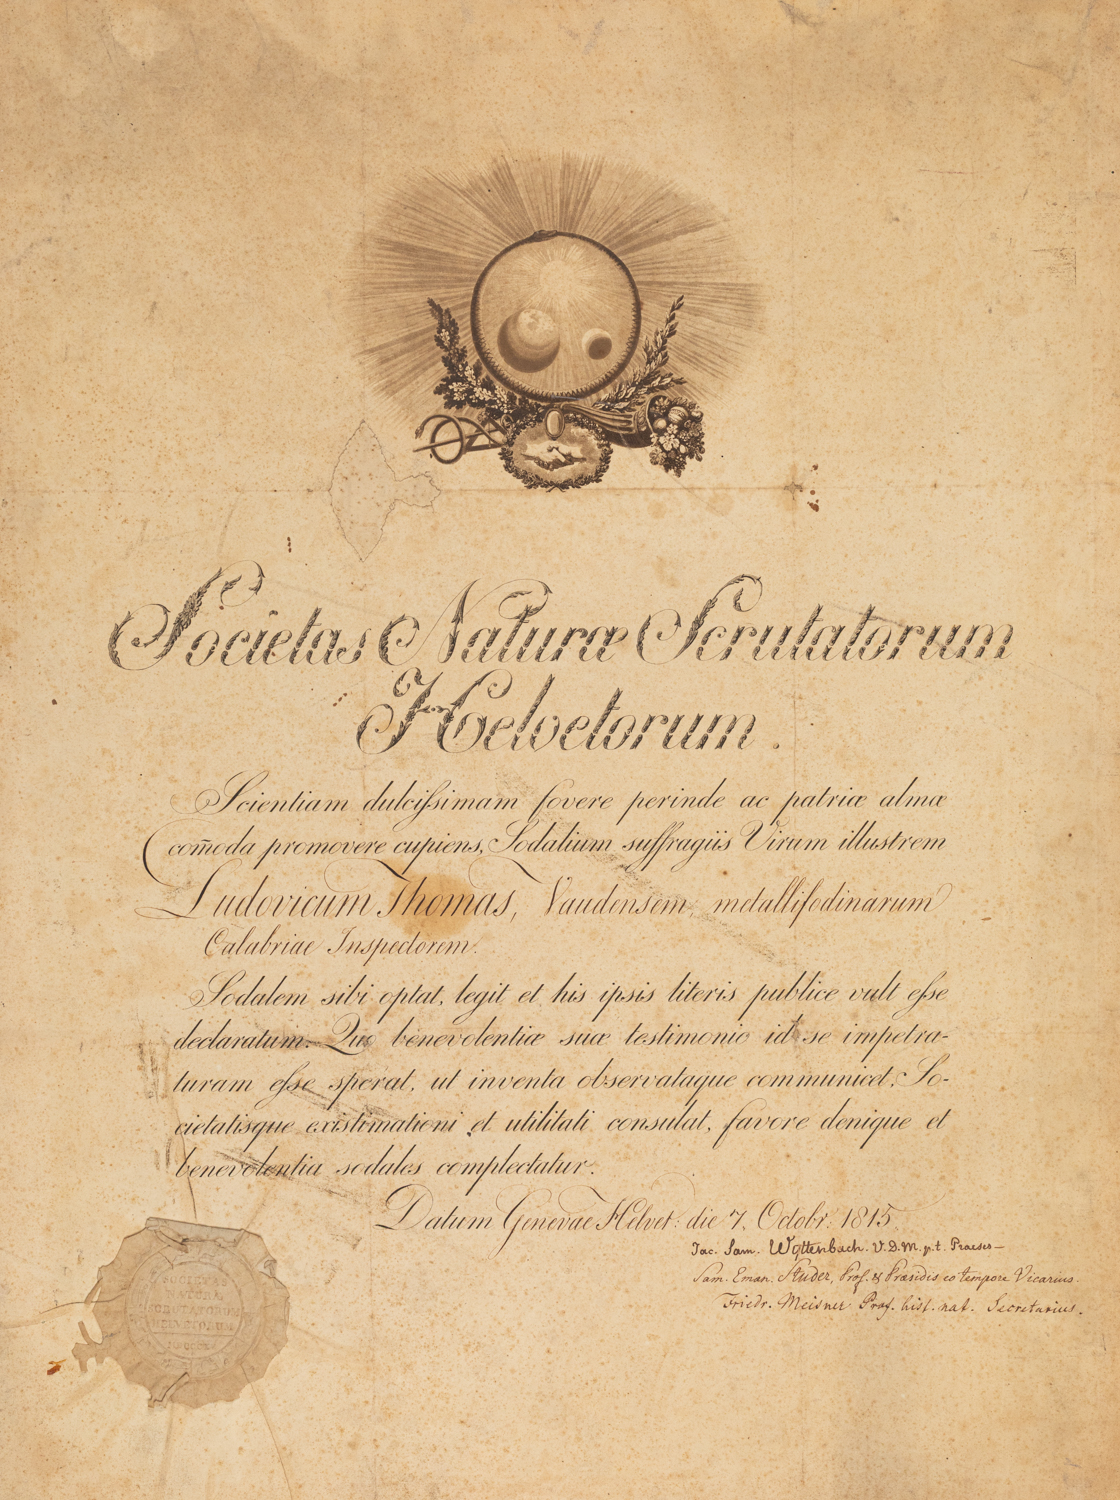 Societas Naturæ Scrutatorum
Helvetorum.
Scientiam dulcissimam fovere perinde ac patriæ almæ
com̄oda promovere cupiens, Sodalium suffragiis Virum illustrem
Ludovicum Thomas, Vaudensem, metallifodinarum
Calabriae Inspectorem.
Sodalem sibi optat, legit et his ipsis literis publice vult esse
declaratum. Quo benevolentiæ suæ testimonio id se impetra-
turam esse sperat, ut inventa observataque communicet, So-
cietatisque existimationi et utilitati consulat, favore denique et
benevolentia sodales complectatur.
Datum Genevae Helvet: die 7. Octobr. 1815
Jac. Sam. Wyttenbach. V.D.M. p.t. Praeses—
Sam. Eman. Studer, Prof. & Præsidis eo tempore Vicarius.
Friedr. Meisner Prof. hist. nat. Secretarius.
SCRUTATORUM
HELVETORUM